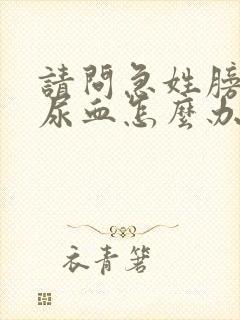 請問急姓膀
尿血怎麼办
衣青箬